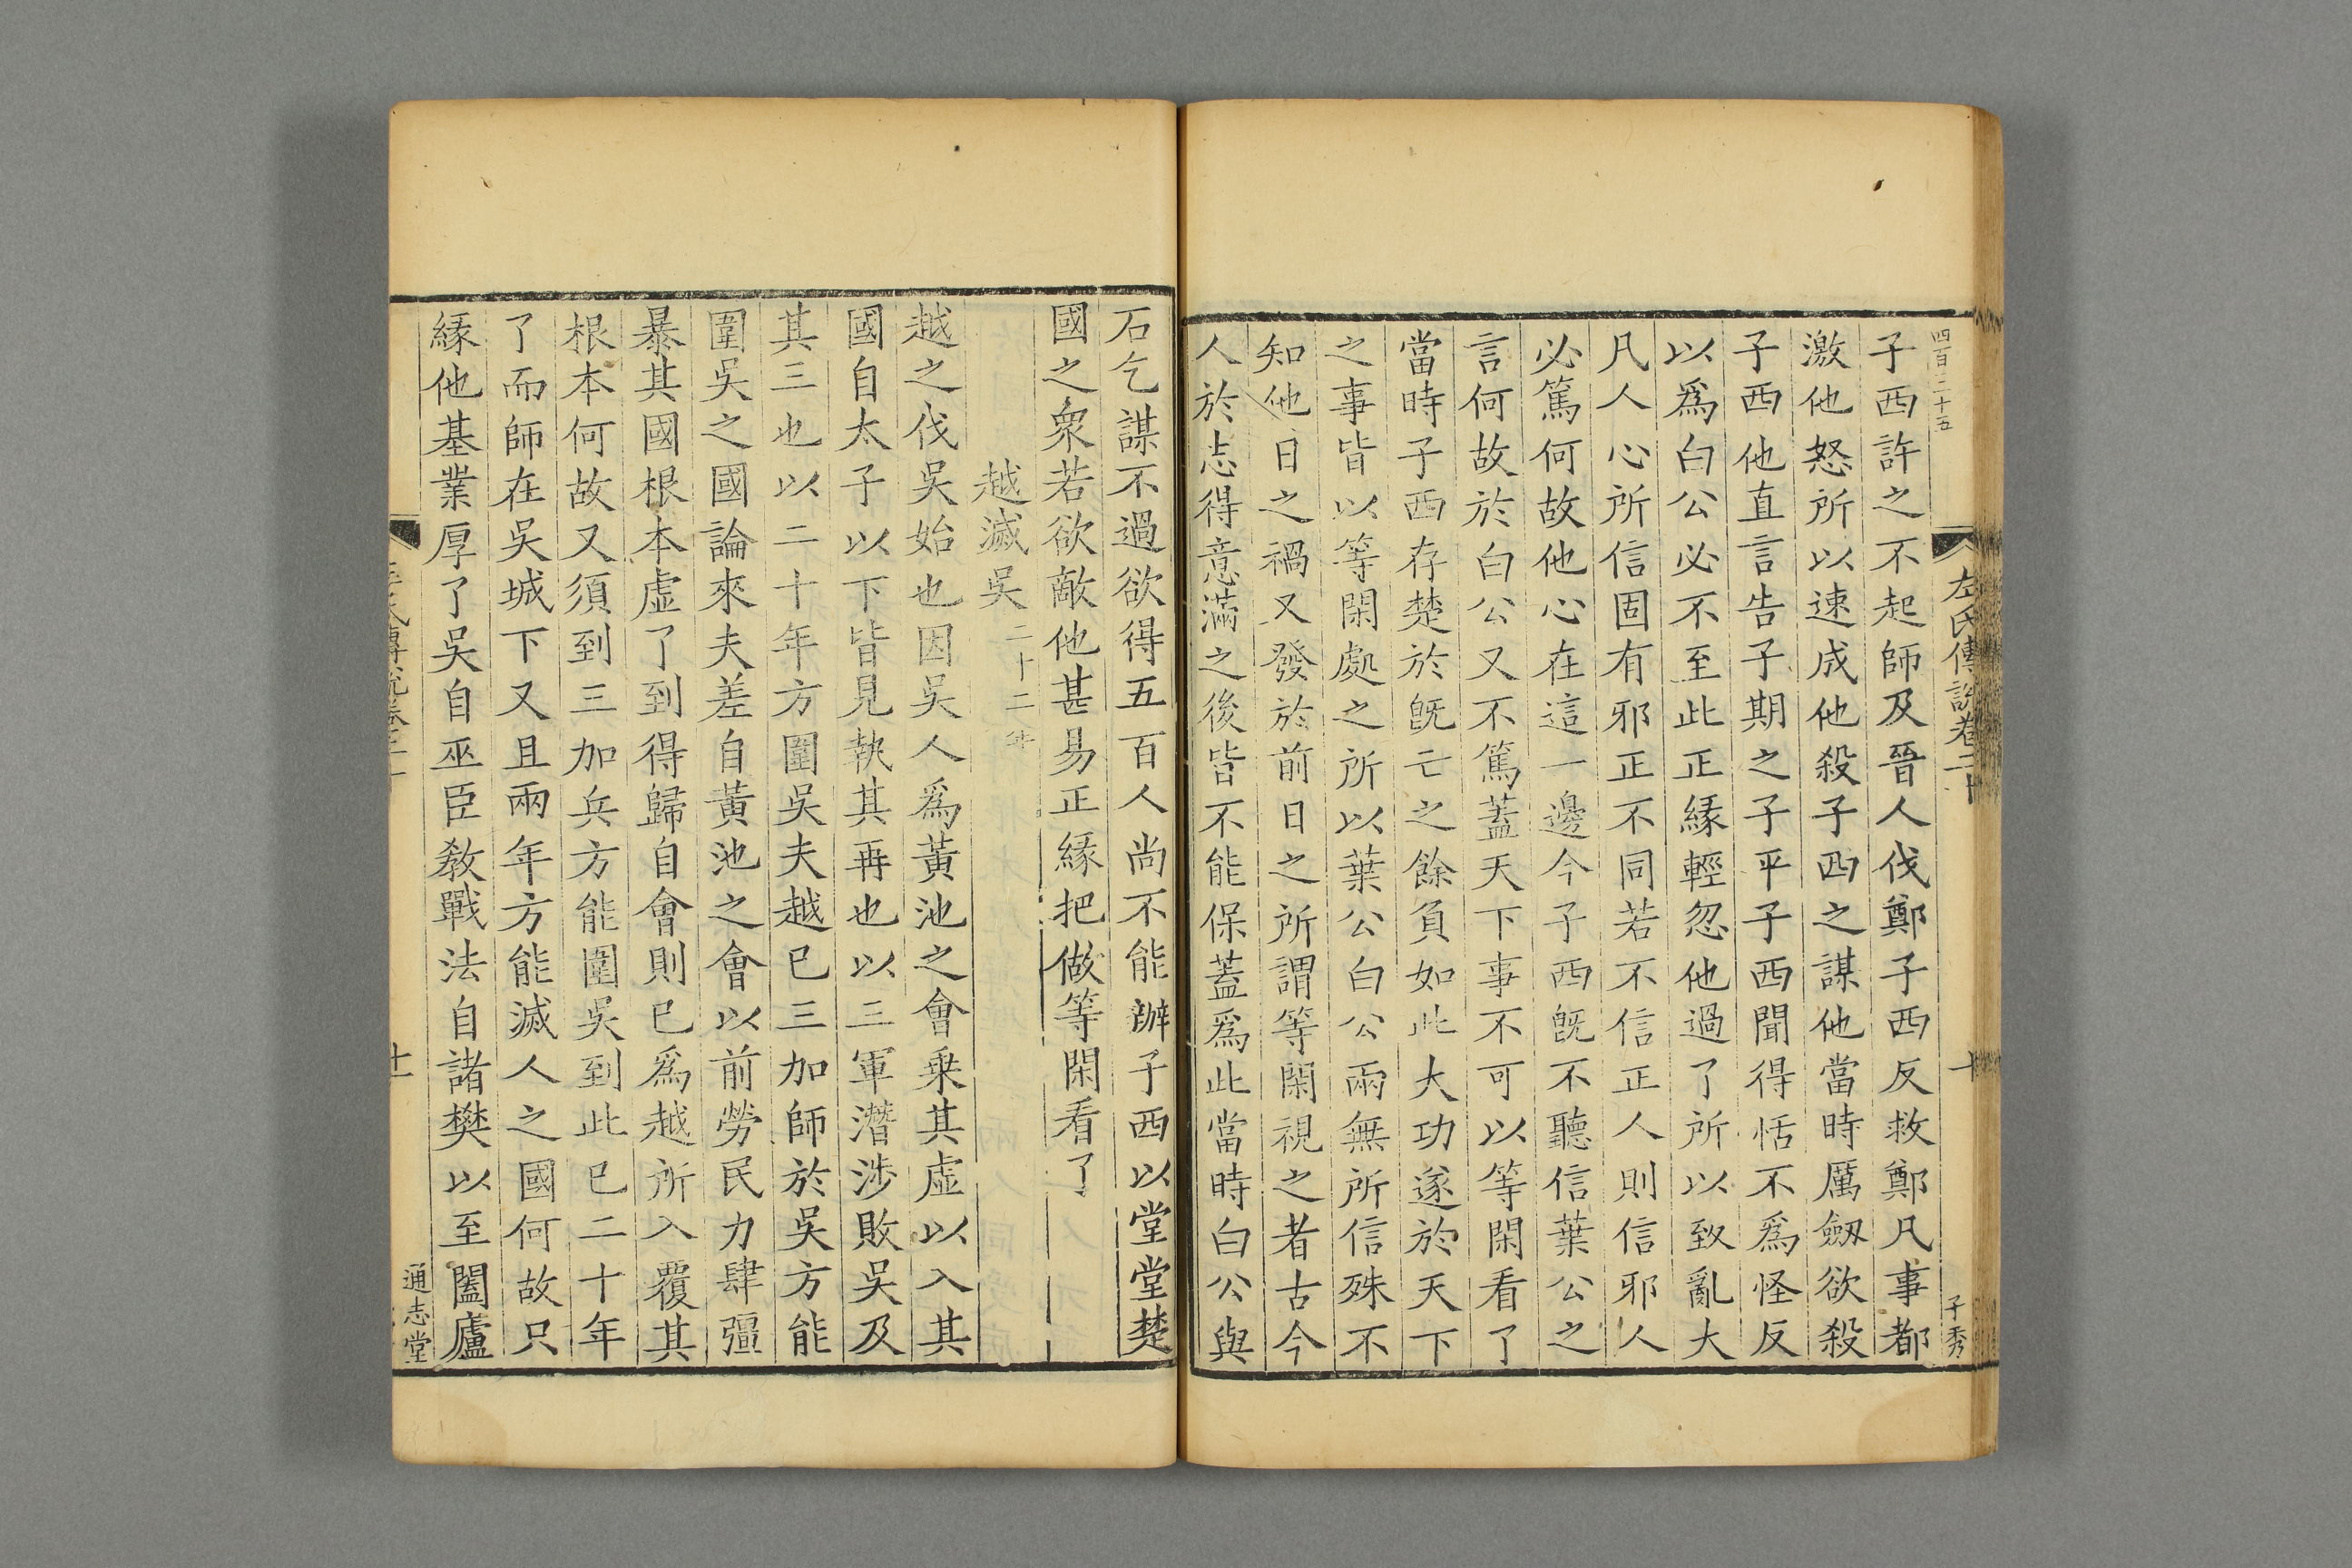 四百二十五
左氏傳說卷二十
十
子秀
子西許之不起師及晉人伐鄭子西反救鄭凡事都
激他怒所以速成他殺子西之謀他當時厲劔欲殺
子西他直言告子期之子平子西聞得恬不爲怪反
以爲白公必不至此正緣輕忽他過了所以致亂大
凡人心所信固有邪正不同若不信正人則信邪人
必篤何故他心在這一邊今子西旣不聽信葉公之
言何故於白公又不篤蓋天下事不可以等閑看了
當時子西存楚於旣亡之餘負如此大功遂於天下
之事皆以等閑處之所以葉公白公兩無所信殊不
知他日之禍又發於前日之所謂等閑視之者古今
人於志得意滿之後皆不能保蓋爲此當時白公與
石乞謀不過欲得五百人尚不能辦子西以堂堂楚
國之衆若欲敵他甚易正緣把做等閑看了
越滅吳 二十二年
越之伐吳始也因吳人爲黃池之會乗其虛以入其
國自太子以下皆見執其再也以三軍潛涉敗吳及
其三也以二十年方圍吳夫越已三加師於吳方能
圍吳之國論來夫差自黃池之會以前勞民力肆彊
暴其國根本虛了到得歸自會則已爲越所入覆其
根本何故又須到三加兵方能圍吳到此已二十年
了而師在吳城下又且兩年方能滅人之國何故只
緣他基業厚了吳自巫臣敎戰法自諸樊以至闔廬
左氏傳說卷二十
十一
通志堂